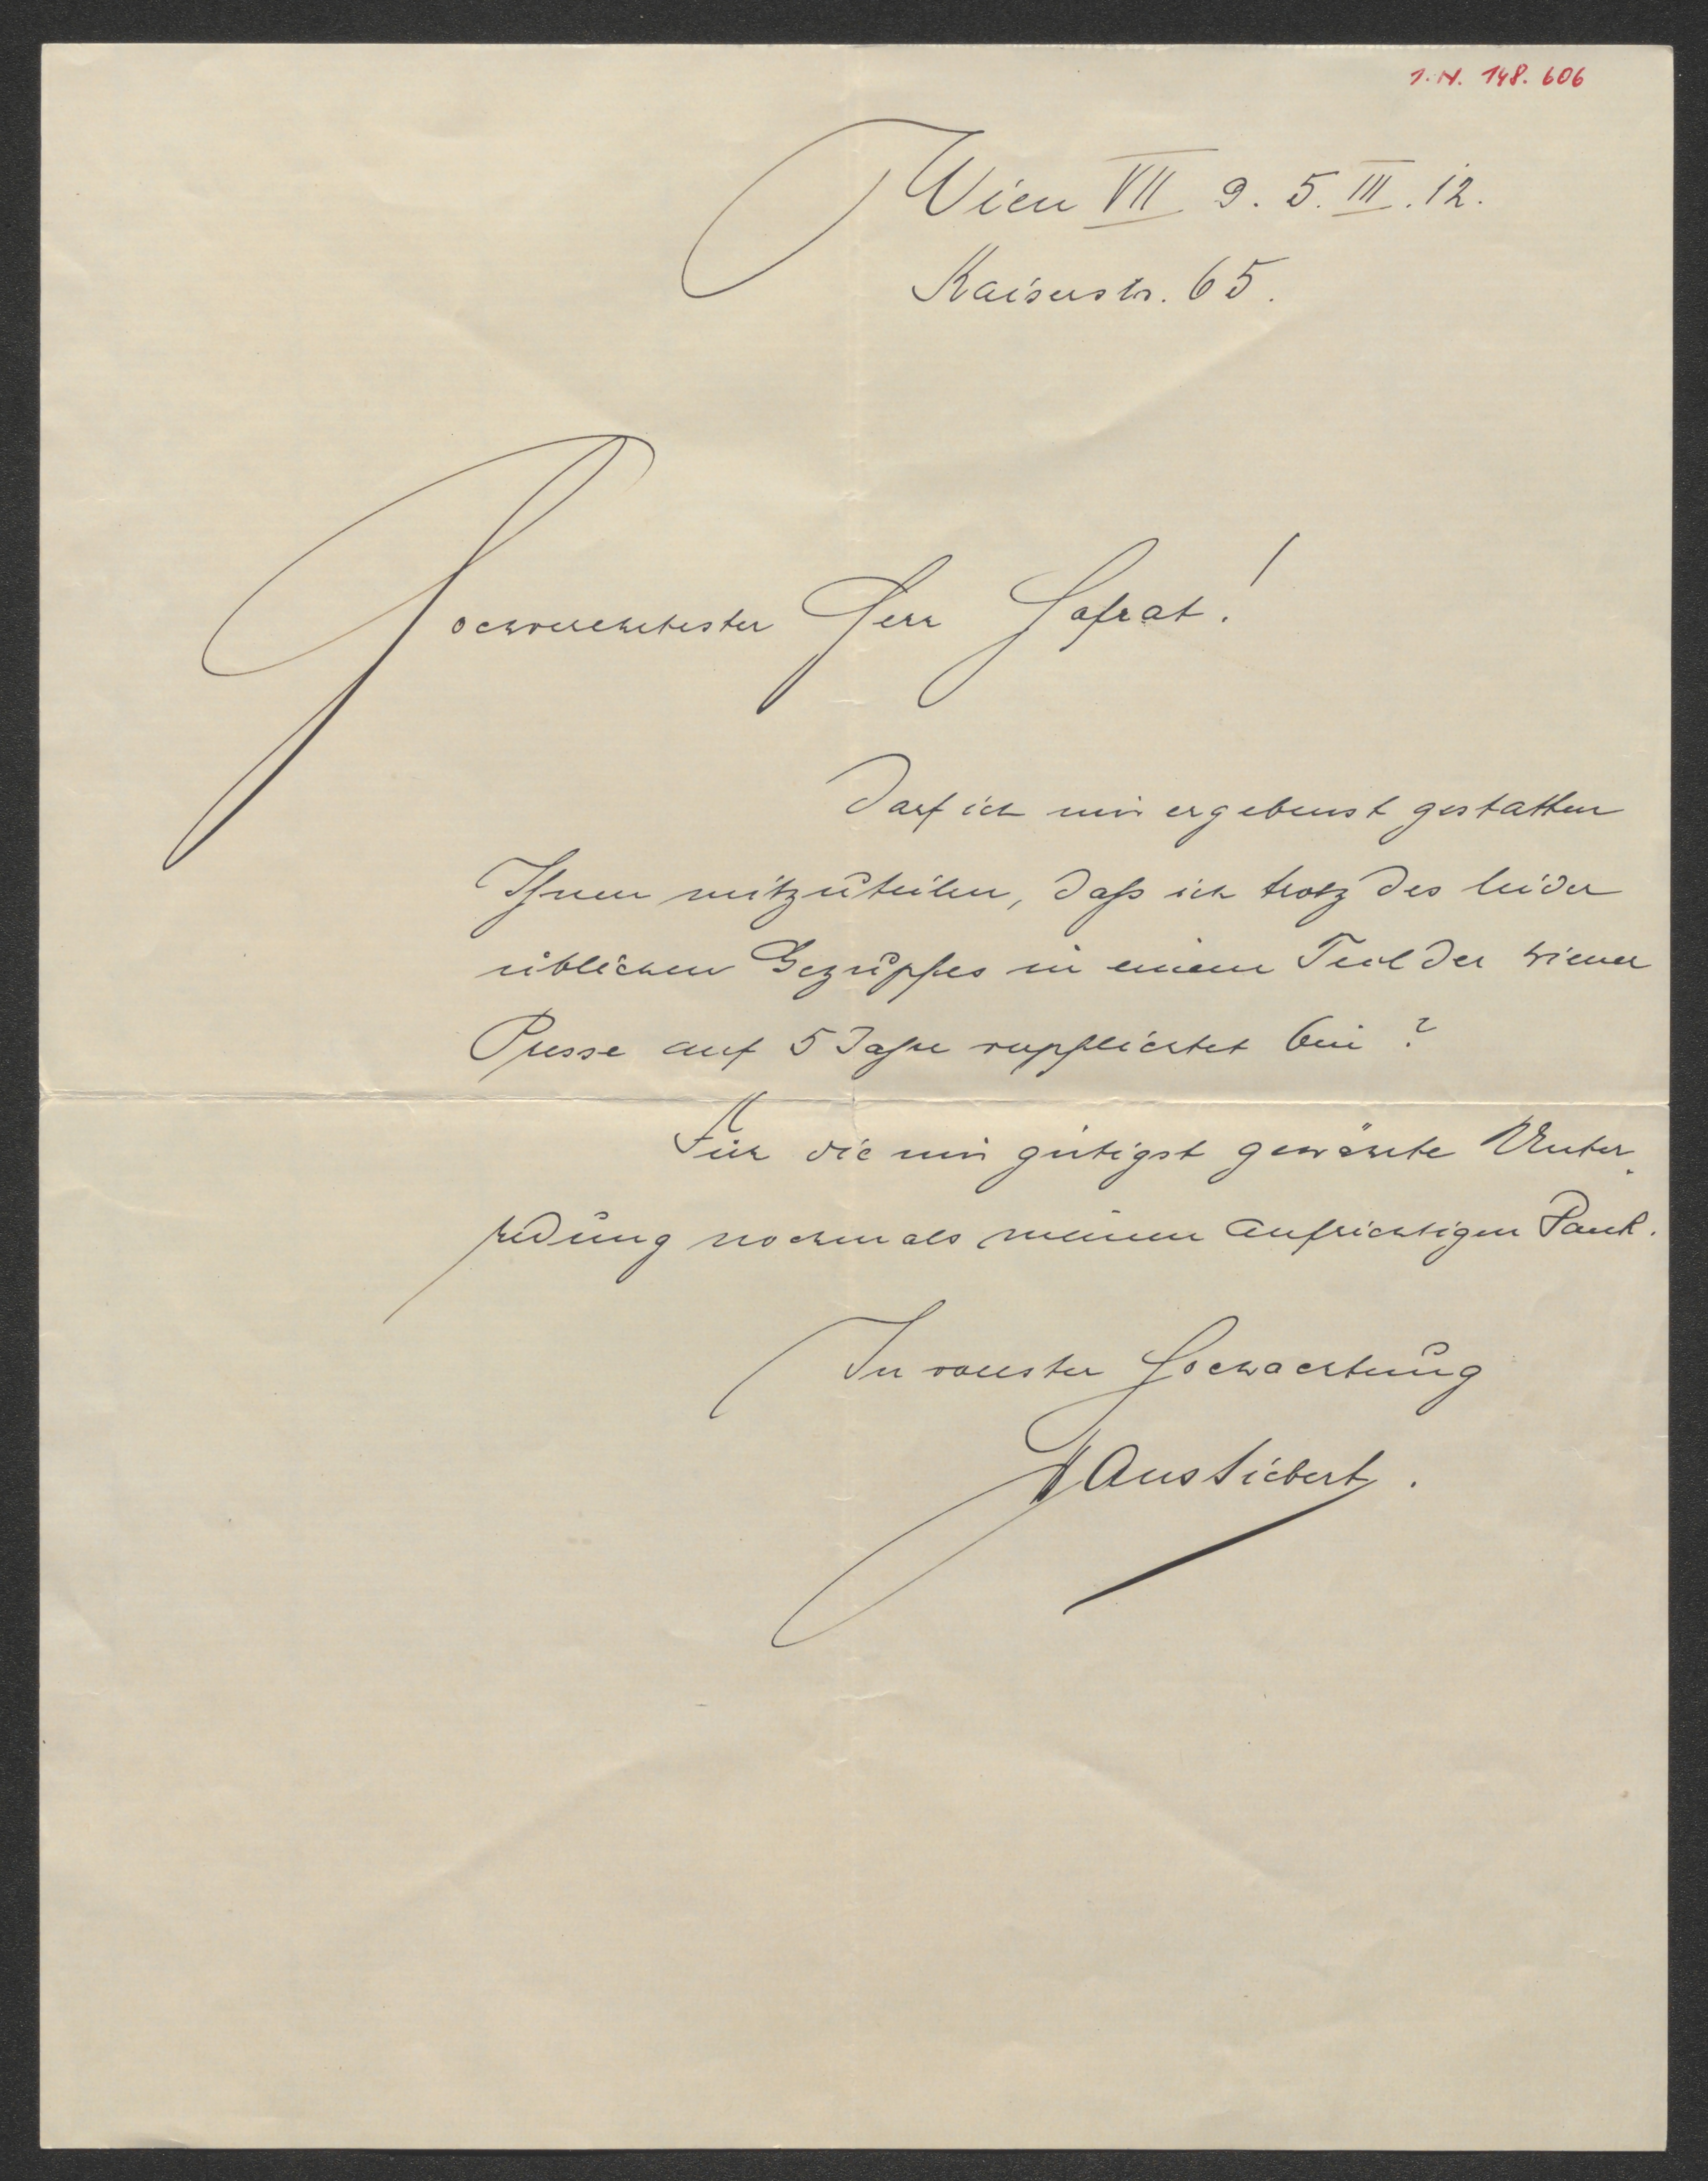 I.N. 148.606
Wien VII 9. 5. III. 12.
Kaiserstr. 65.
Hochverehrtester Herr Hofrat!
Darf ich mir ergebenst gestatten
Ihnen mitzuteilen, daß ich trotz des leider
üblichen Gezupfes in einem Teil der wiener
Presse auf 5 Jahre verpflichtet bin?
Für die mir gütigst gewährte Unter-
redung nochmals meinen aufrichtigen Dank.
In vollster Hochachtung
Hans Siebert.